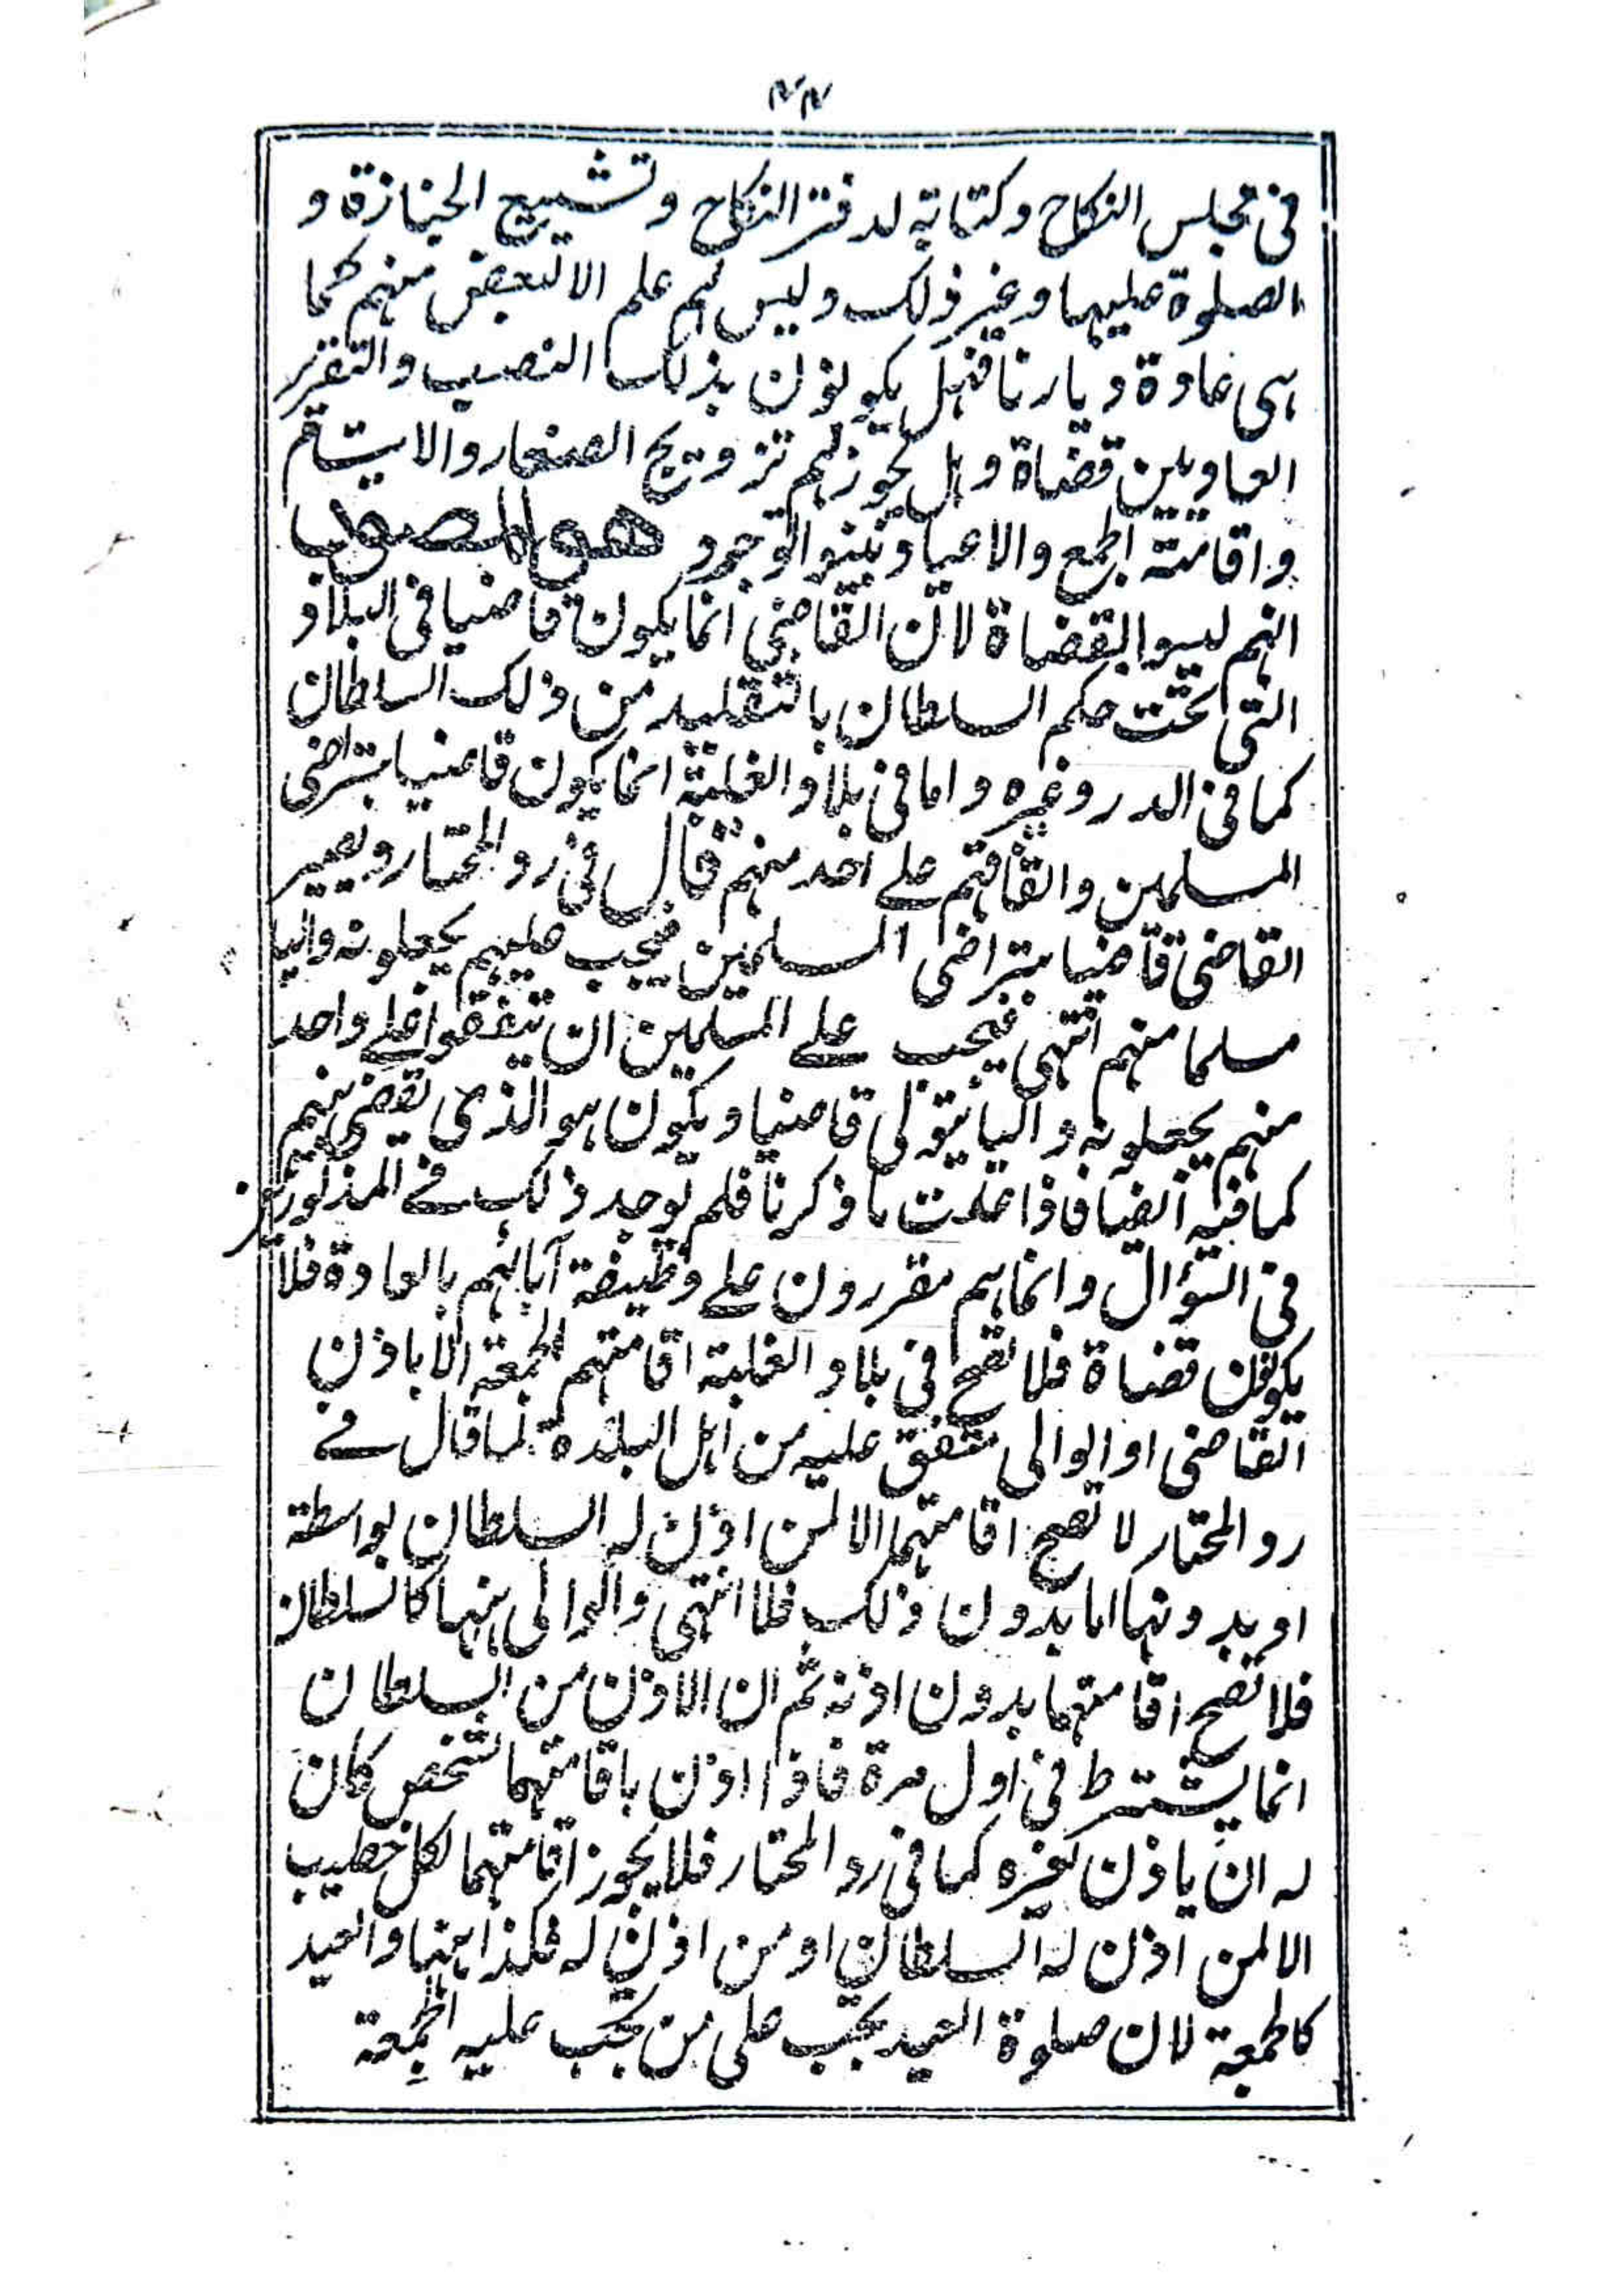 في مجلس النكاح وكتابته لدفتر النكاح وتشييع الجنازة و
الصلوة عليها وغير ذلك وليس لهم علم الا لبعض منهم كما
هى عادة ديارنا فهل يكونون بذلك النصب والتقرر
العاديين قضاة وهل يجوز لهم تزويج الصغار والايتام
واقامته الجمع والاعياد بينوا توجروا هو المصوب
انهم ليسوا بقضاة لان القاضي انما يكون قاضيا في البلاد
التى تحت حكم السلطان بالتقليد من ذلك السلطان
كما في الدر وغيره واما في بلاد الغلبة انما يكون قاضيا بتراضى
المسلمين واتفاقهم على احد منهم قال في رد المحتار ويصير
القاضى قاضيا بتراضى المسلمين فيجب عليهم يجعلونه واليا
مسلما منهم انتهى فيجب على المسلمين ان يتفقوا على واحد
منهم يجعلونه واليا يتولى قاضيا ويكون هو الذى يقضى بينهم
كما فيه ايضا فاذا علمت ما ذكرنا فلم يوجد ذلك في المذكورين
في السؤال وانما هم مقررون على وظيفة آبائهم بالعادة فلا
يكونون قضاة فلا تصح في بلاد الغلبة اقامتهم الجمعة الا باذن
القاضى او الوالى متفق عليه من اهل البلدة لما قال في
رد المحتار لا تصح اقامتها الا لمن اذن له السلطان بواسطة
او بدونها اما بدون ذلك فلا انتهى والوالى ههنا كالسلطان
فلا تصح اقامتها بدون اذنه ثم ان الاذن من السلطان
انما يشترط في اول مرة فاذا اذن باقامتها لشخص كان
له ان ياذن لغيره كما في رد المحتار فلا يجوز اقامتها لكل خطيب
الا لمن اذن له السلطان او من اذن له فكذا ههنا والعيد
كالجمعة لان صلوة العيد يجب على من تجب عليه الجمعة